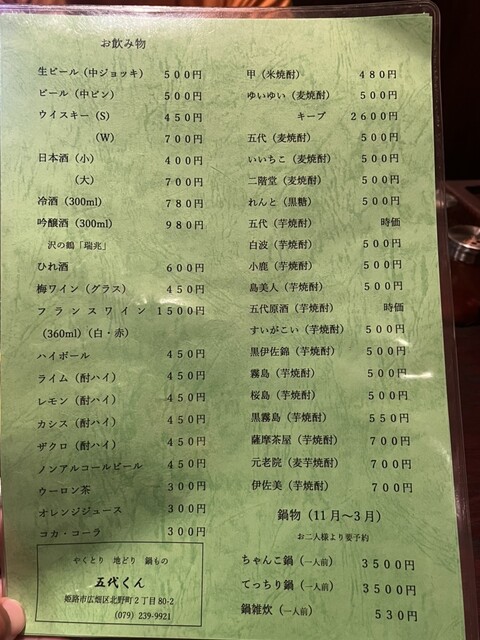 お飲み物
生ビール（中ジョッキ） ５００円
ビール（中ビン） ５００円
ウイスキー（S） ４５０円
（W） ７００円
日本酒（小） ４００円
（大） ７００円
冷酒（300ml） ７８０円
吟醸酒（300ml） ９８０円
沢の鶴「瑞兆」
ひれ酒 ６００円
梅ワイン（グラス） ４５０円
フランスワイン １５００円
（360ml）（白・赤）
ハイボール ４５０円
ライム（酎ハイ） ４５０円
レモン（酎ハイ） ４５０円
カシス（酎ハイ） ４５０円
ザクロ（酎ハイ） ４５０円
ノンアルコールビール ４５０円
ウーロン茶 ３００円
オレンジジュース ３００円
コカ・コーラ ３００円
やくとり 地どり 鍋もの
五代くん
姫路市広畑区北野町２丁目80-2
（079）239-9921
甲（米焼酎） ４８０円
ゆいゆい（麦焼酎） ５００円
キープ ２６００円
五代（麦焼酎） ５００円
いいちこ（麦焼酎） ５００円
二階堂（麦焼酎） ５００円
れんと（黒糖） ５００円
五代（芋焼酎） 時価
白波（芋焼酎） ５００円
小鹿（芋焼酎） ５００円
島美人（芋焼酎） ５００円
五代原酒（芋焼酎） 時価
すいがこい（芋焼酎） ５００円
黒伊佐錦（芋焼酎） ５００円
霧島（芋焼酎） ５００円
桜島（芋焼酎） ５００円
黒霧島（芋焼酎） ５５０円
薩摩茶屋（芋焼酎） ７００円
元老院（麦芋焼酎） ７００円
伊佐美（芋焼酎） ７００円
鍋物（11月～3月）
お二人様より要予約
ちゃんこ鍋（一人前） ３５００円
てっちり鍋（一人前） ３５００円
鍋雑炊（一人前） ５３０円